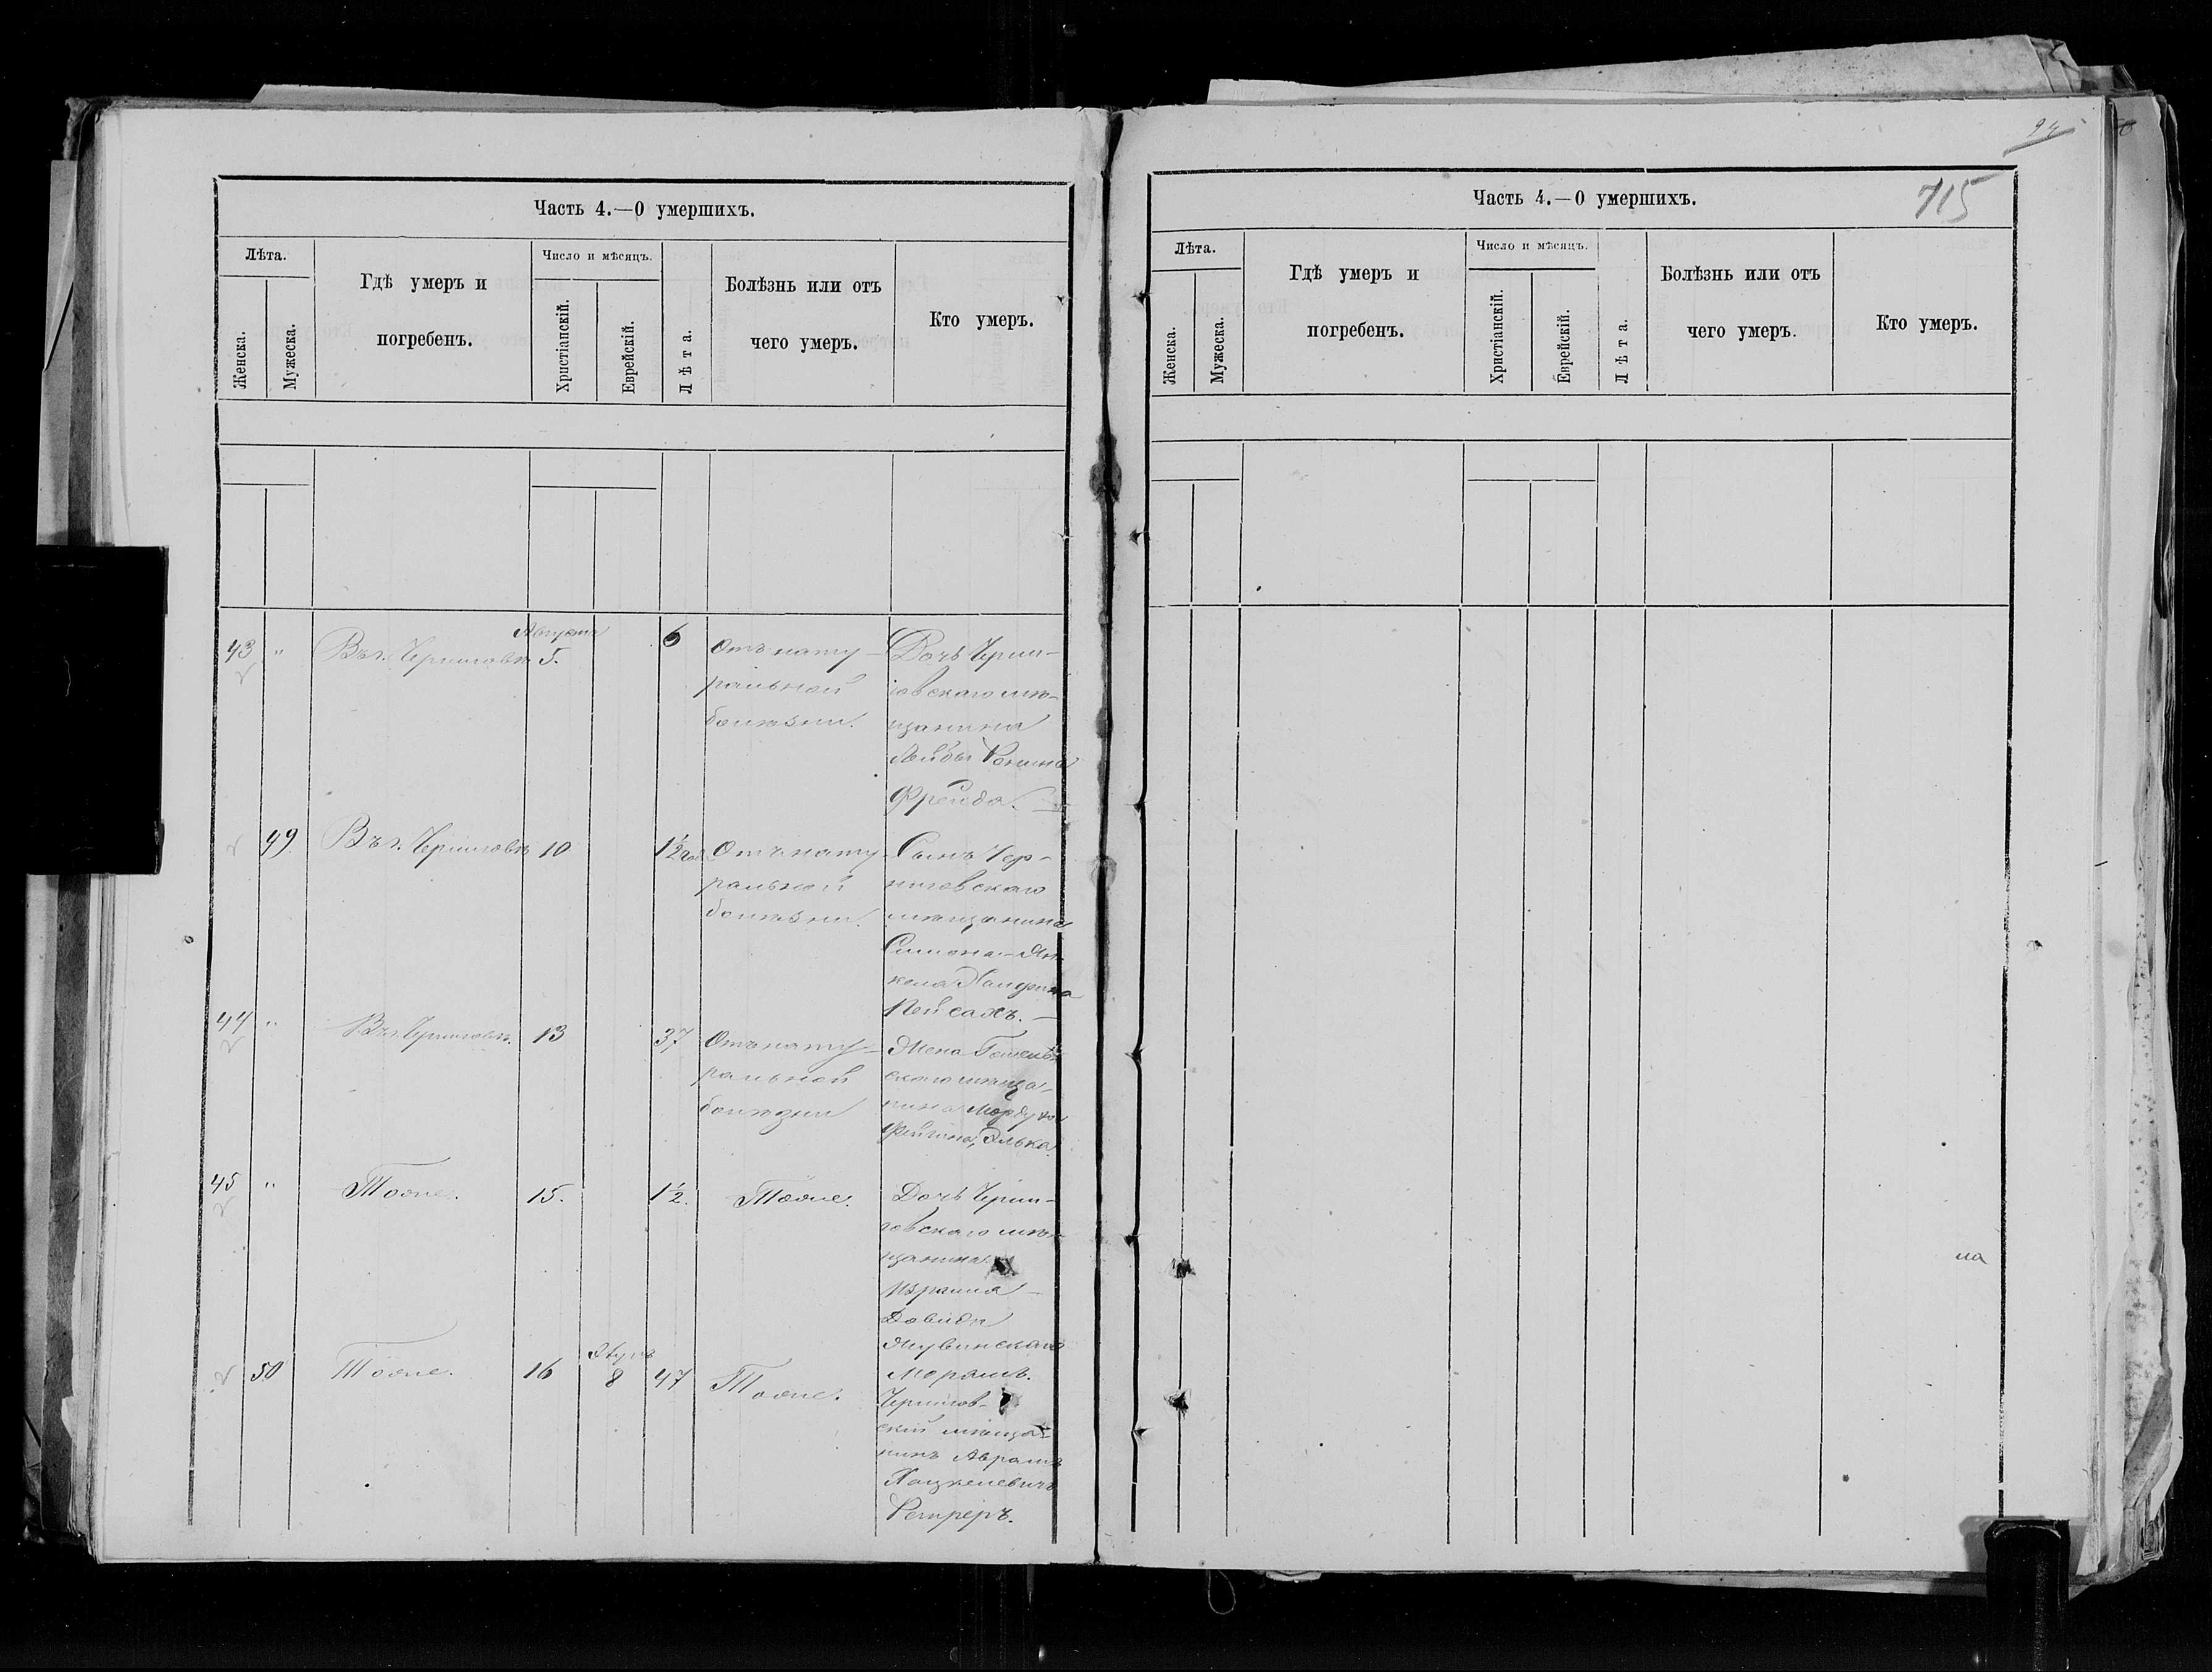 94
715
Часть 4.—О умершихъ.
Лѣта.
Женска.
Мужеска.
Гдѣ умеръ и
погребенъ.
Число и мѣсяцъ.
Христіанскій.
Еврейскій.
Лѣта.
Болѣзнь или отъ
чего умеръ.
Кто умеръ.
43 " Въ г. Черниговѣ Августа 5. 6
Отъ нату-
ральной
болѣзни.
Дочь Черни-
говскаго мѣ-
щанина
Лейбы
Фрейда.
49 Въ г. Черниговѣ 10 1½ год
Отъ нату-
ральной
болѣзни.
Сынъ Чер-
ниговскаго
мѣщанина
Симона-Ян-
келя
Пейсахъ.
44 " Въ г. Черниговѣ. 13 37
Отъ нату-
ральной
болѣзни
Жена
скаго мѣща-
нина Мордуха
Фейгина, Элька.
45 " Тоже. 15. 1½. Тоже.
Дочь Черни-
говскаго мѣ-
щанина
Израиля-
Довида
50 Тоже. 16 8 47 Тоже.
Чернигов-
скій мѣща-
нинъ Абрамъ
Хацкелевичъ
Часть 4.—О умершихъ.
Лѣта.
Женска.
Мужеска.
Гдѣ умеръ и
погребенъ.
Число и мѣсяцъ.
Христіанскій.
Еврейскій.
Лѣта.
Болѣзнь или отъ
чего умеръ.
Кто умеръ.